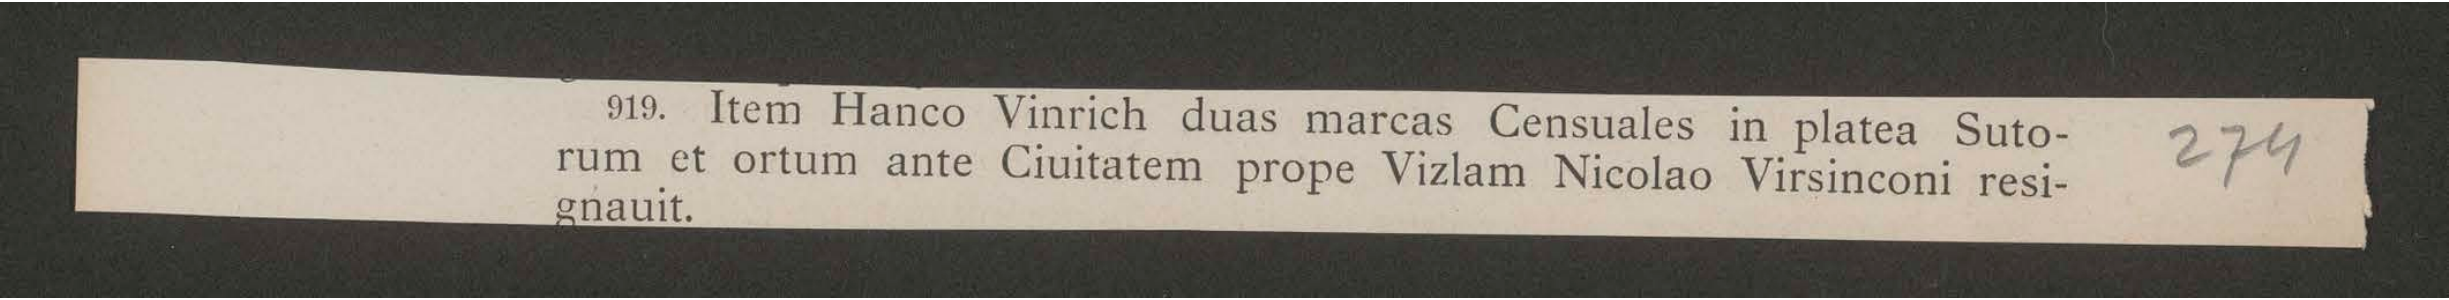 919. Item Hanco Vinrich duas marcas Censuales in platea Suto-
rum et ortum ante Ciuitatem prope Vizlam Nicolao Virsinconi resi-
gnauit.
274